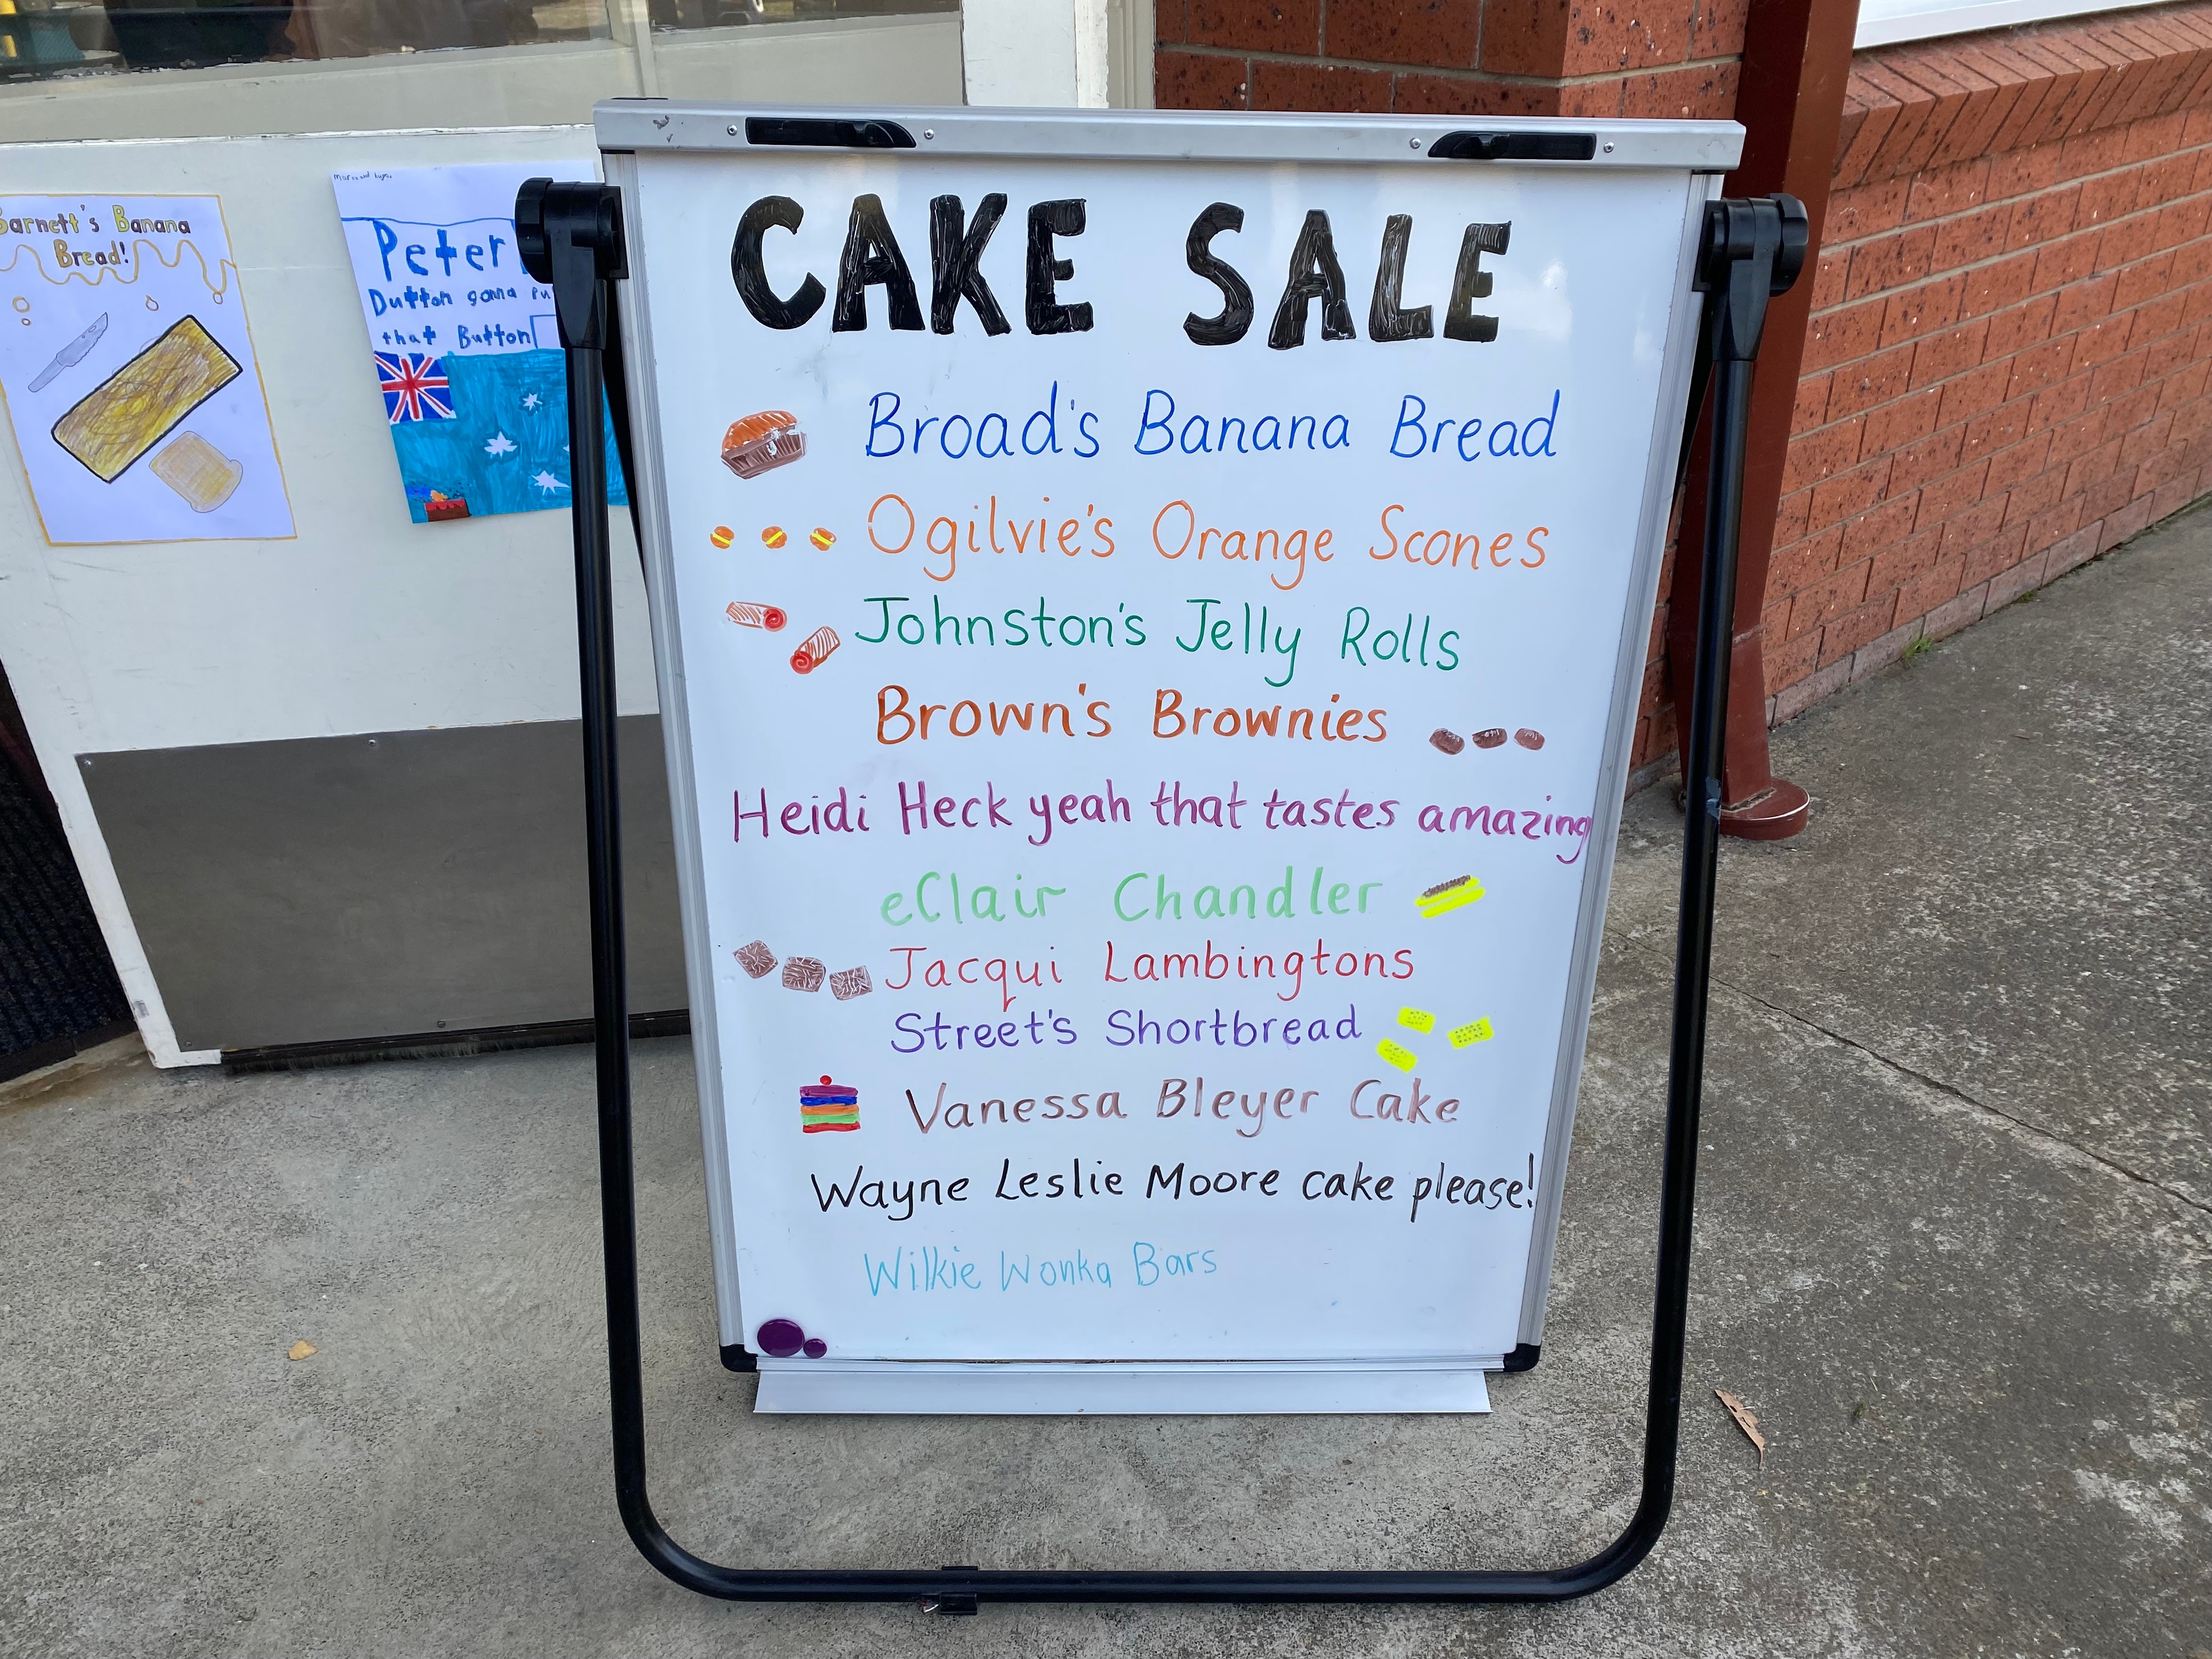 Barnett's Banana
Bread!
Peter
Dutton gonna pu
that Button
CAKE SALE
Broad's Banana Bread
Ogilvie's Orange Scones
Johnston's Jelly Rolls
Brown's Brownies
Heidi Heck yeah that tastes amazing
eClair Chandler
Jacqui Lambingtons
Street's Shortbread
Vanessa Bleyer Cake
Wayne Leslie Moore cake please!
Wilkie Wonka Bars